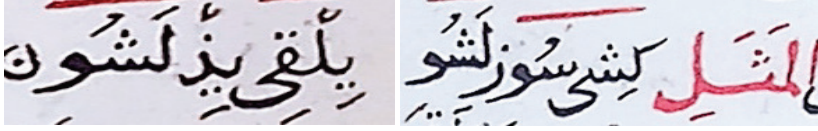 المَثَلِ كِشى سُوزلَشُو
يِلْقِى يِذْلَشُو